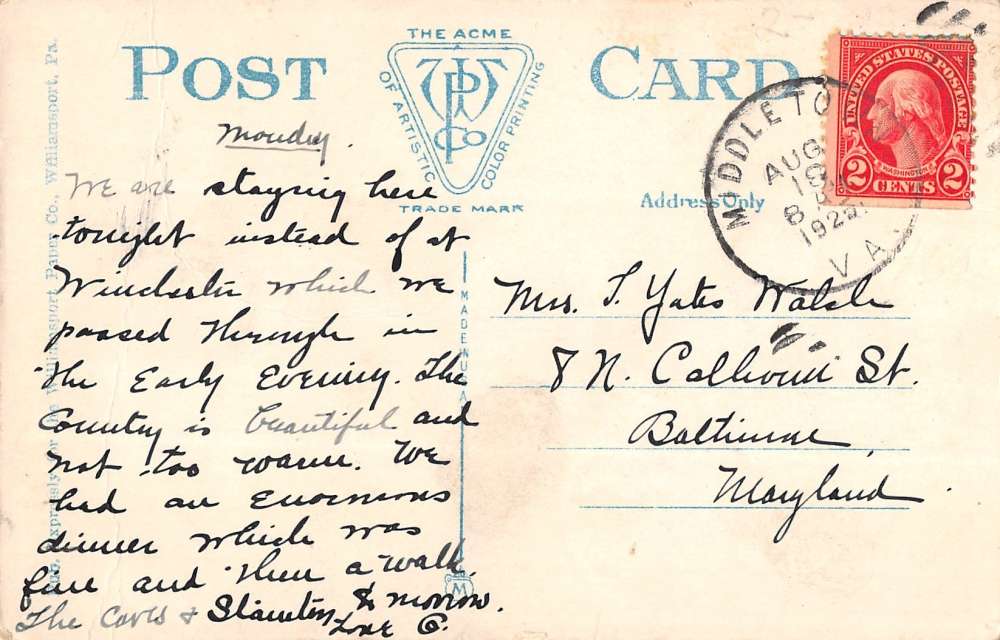 POST CARD
THE ACME
OF ARTISTIC
COLOR PRINTING
WPN Co
TRADE MARK
Pub. Expressly for the Williamsport Paper Co., Williamsport, Pa.
Monday.
We are staying here
tonight instead of at
Winchester which we
passed through in
the Early Evening. The
Country is beautiful and
not too warm. We
had an Enormous
dinner which was
fine and then a walk.
The Caves & Staunton to morrow.
Love G.
MADE IN U.S.A.
M
Address Only
MIDDLETO
AUG
19
8
192
VA.
UNITED STATES POSTAGE
WASHINGTON
2 CENTS 2
Mrs. T. Yates Walsh
8 N. Calhoun St.
Baltimore,
Maryland